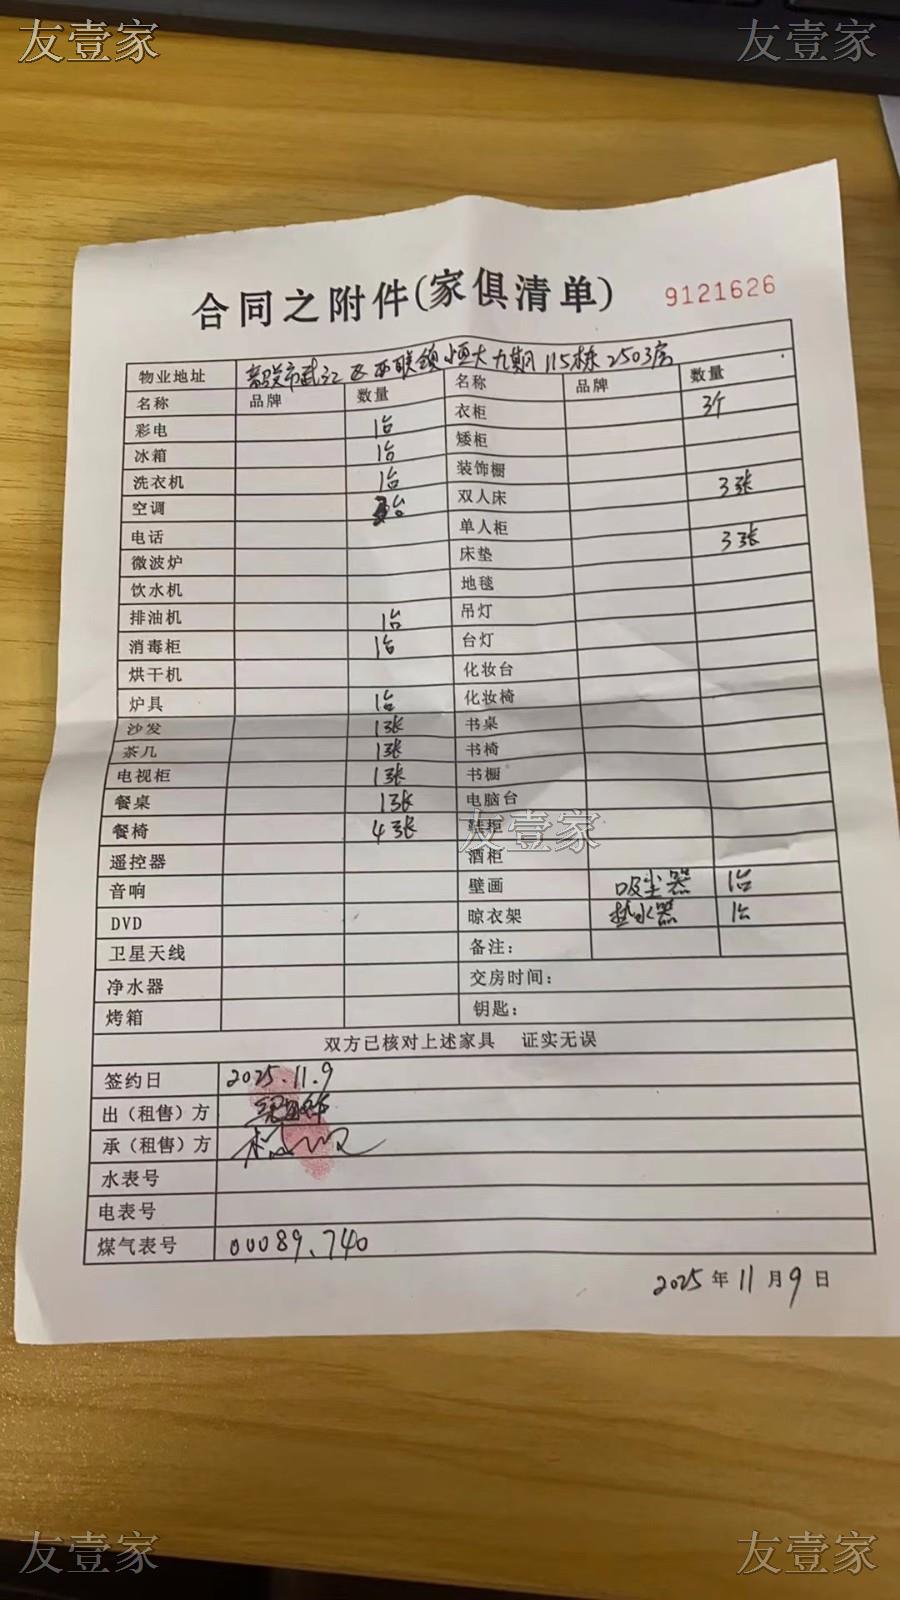 友壹家 友壹家
合同之附件(家俱清单) 9121626
物业地址 韶关市武江区西联镇恒大九期115栋2503房
名称 品牌 数量 名称 品牌 数量
彩电 1台 衣柜 3个
冰箱 1台 矮柜
洗衣机 1台 装饰橱
空调 台 双人床 3张
电话 单人柜
微波炉 床垫 3张
饮水机 地毯
排油机 1台 吊灯
消毒柜 1台 台灯
烘干机 化妆台
炉具 1台 化妆椅
沙发 1张 书桌
茶几 1张 书椅
电视柜 1张 书橱
餐桌 1张 电脑台
餐椅 4张 鞋柜
友壹家
遥控器 酒柜
音响 壁画 吸尘器 1台
DVD 晾衣架 热水器 1台
卫星天线 备注：
净水器 交房时间：
烤箱 钥匙：
双方已核对上述家具 证实无误
签约日 2025.11.9
出（租售）方
承（租售）方
水表号
电表号
煤气表号 00089.740
2025年11月9日
友壹家 友壹家